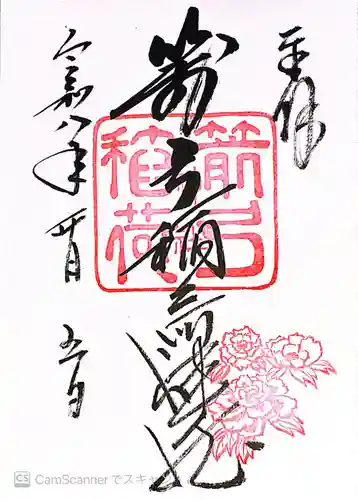 奉拝
箭弓稲荷神社
箭弓
稲荷
令和八年
月
五日
CS CamScanner でスキャ